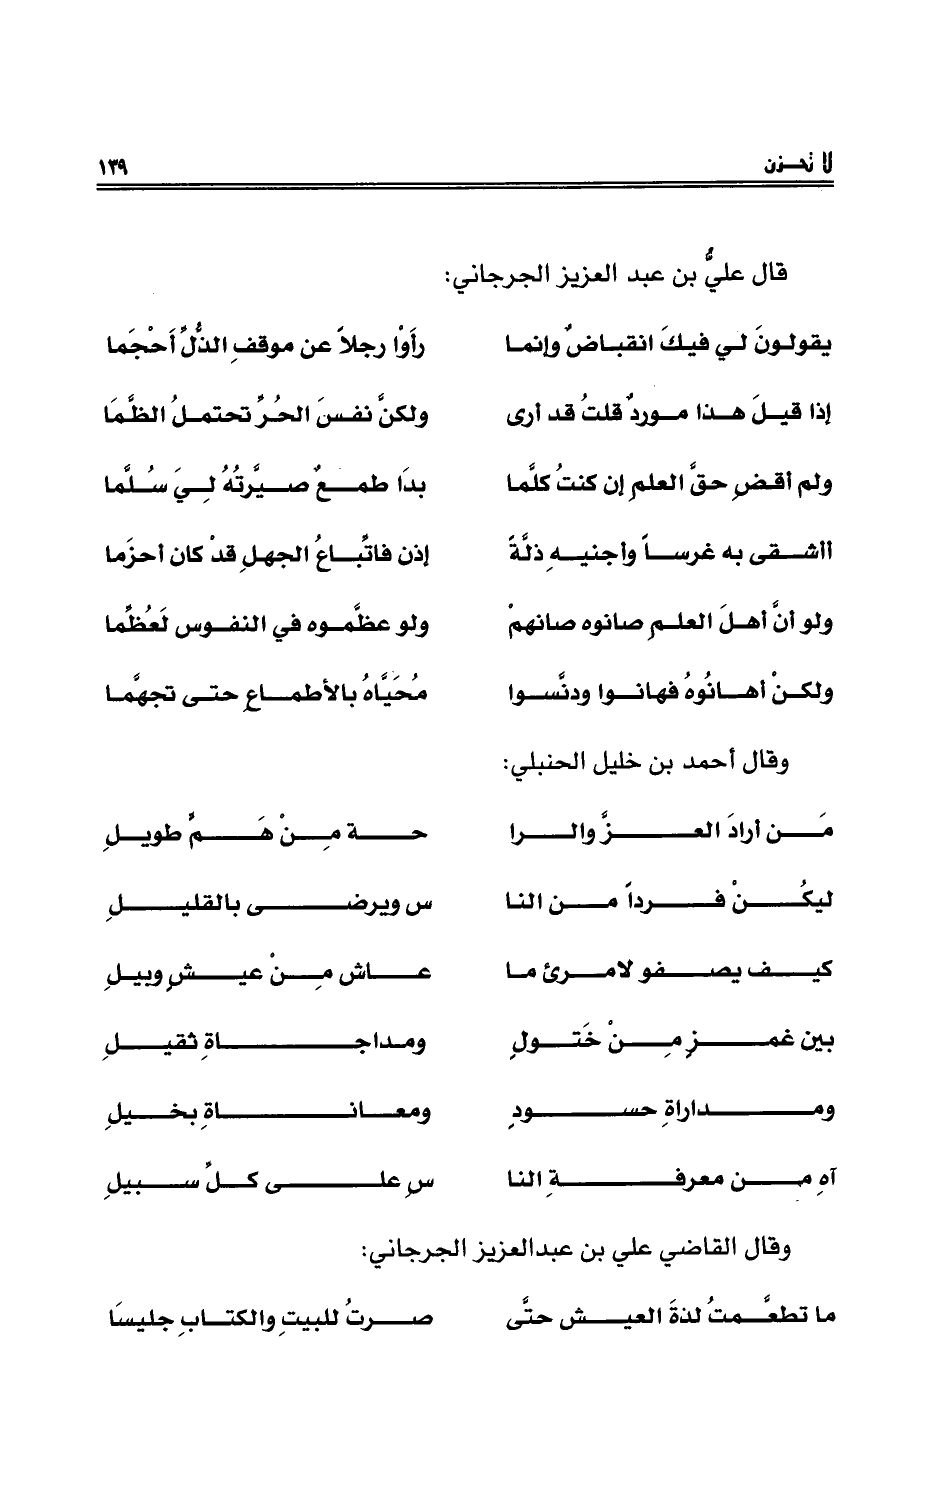 لا تحـزن ١٣٩
قال عليُّ بن عبد العزيز الجرجاني:
يقولونَ لي فيكَ انقباضٌ وإنما رأَوْا رجلاً عن موقفِ الذُّلِّ أَحْجَمَا
إذا قيلَ هذا موردٌ قلتُ قد أرى ولكنَّ نفسَ الحُرِّ تحتملُ الظَّمَا
ولم أقضِ حقَّ العلمِ إن كنتُ كلَّما بدَا طمعٌ صيَّرتُهُ لِيَ سُلَّما
أأشقى به غرساً وأجنيهِ ذلَّةً إذن فاتِّباعُ الجهلِ قدْ كان أحزَما
ولو أنَّ أهلَ العلمِ صانوه صانهمْ ولو عظَّموه في النفوس لَعُظِّما
ولكنْ أهانُوهُ فهانوا ودنَّسوا مُحَيَّاهُ بالأطماعِ حتى تجهَّما
وقال أحمد بن خليل الحنبلي:
مَن أرادَ العزَّ والرا حة مِنْ هَمٍّ طويلِ
ليكُنْ فرداً من النا س ويرضى بالقليلِ
كيف يصفو لامرئ ما عاش مِنْ عيشٍ وبيلِ
بين غمزٍ مِنْ خَتولٍ ومداجاةِ ثقيلِ
ومداراةِ حسودٍ ومعاناةِ بخيلِ
آهِ من معرفةِ النا سِ على كلِّ سبيلِ
وقال القاضي علي بن عبدالعزيز الجرجاني:
ما تطعَّمتُ لذةَ العيش حتَّى صرتُ للبيتِ والكتابِ جليسَا